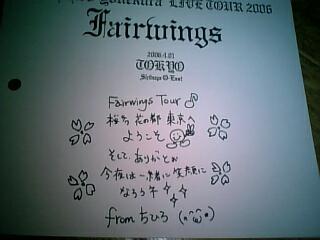 Yonekura LIVE TOUR 2006
Fairwings
2006.4.01
TOKYO
Shibuya O-East
Fairwings Tour♪
花の都 東京へ
ようこそ
そして、ありがとぉ
今夜は一緒に笑顔に
なろうネ
from ちひろ